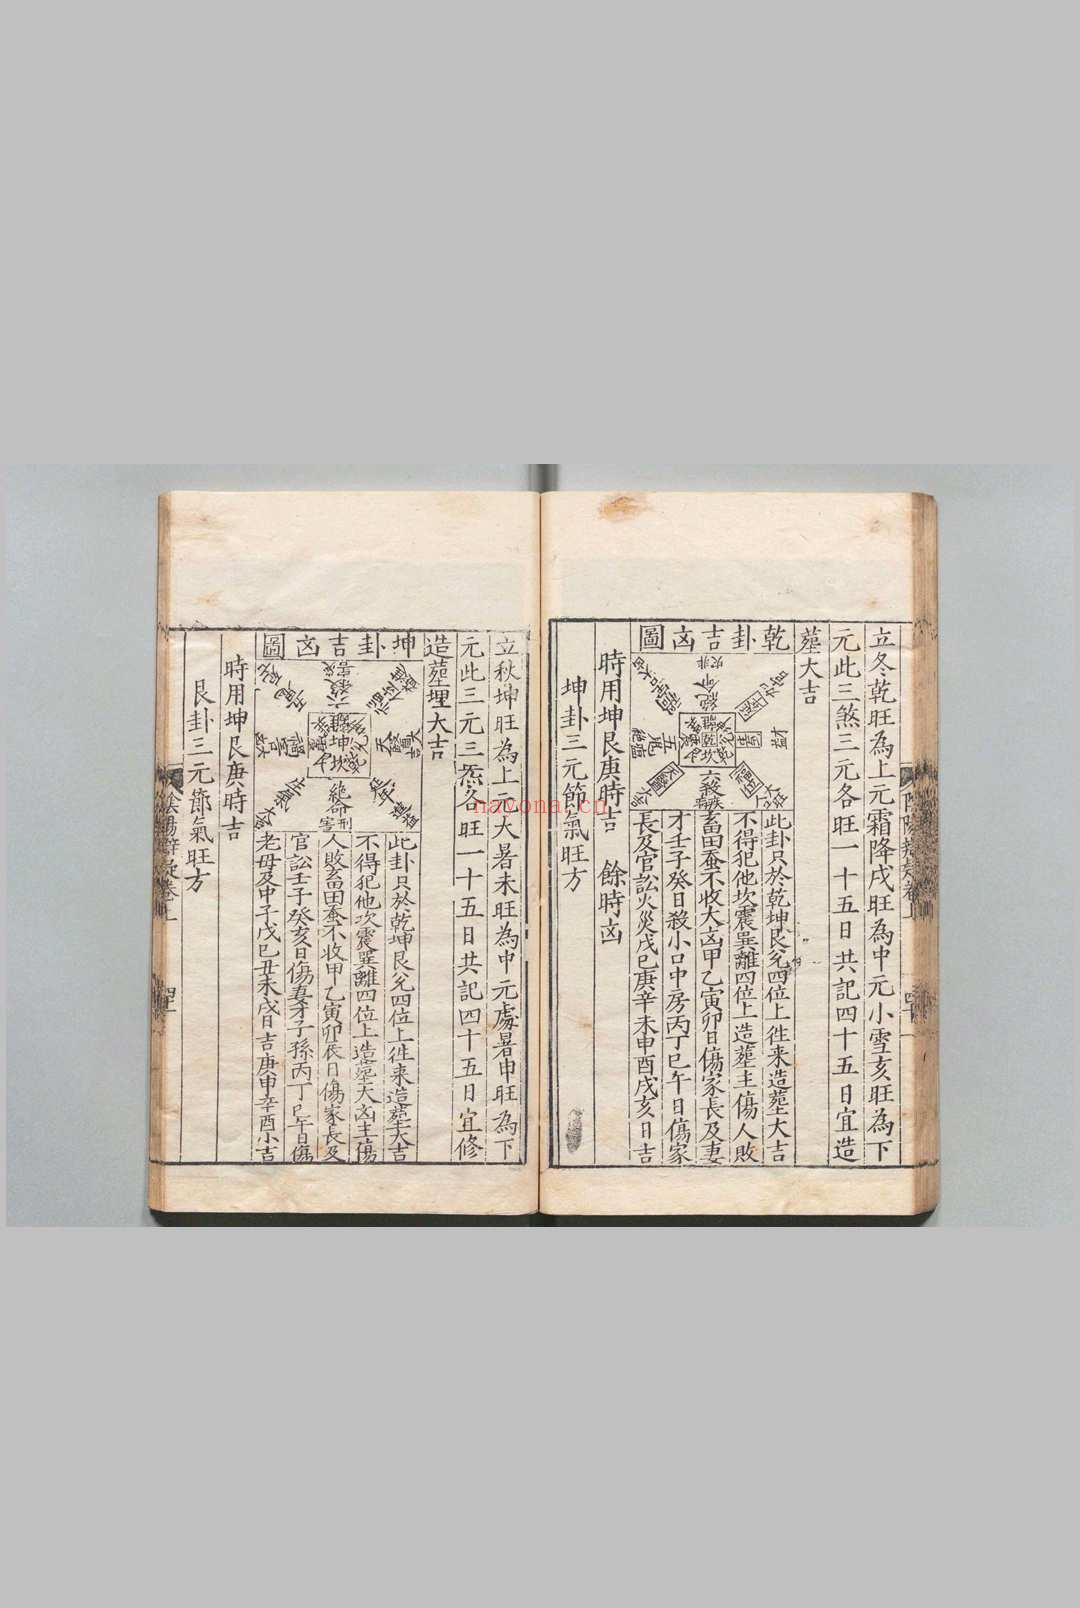 立冬乾旺為上元霜降戌旺為中元小雪亥旺為下
元此三煞三元各旺一十五日共記四十五日宜造
塟大吉
乾卦吉凶圖
此卦只於乾坤艮兊四位上徃来造塟大吉
不得犯他坎震巽離四位上造塟主傷人敗
畜田蚕不收大凶甲乙寅卯日傷家長及妻
才壬子癸日殺小口中房丙丁巳午日傷家
長及官訟火災戊巳庚辛未申酉戌亥日吉
時用坤艮庚時吉 餘時凶
坤卦三元節氣旺方
立秋坤旺為上元大暑未旺為中元處暑申旺為下
元此三元三煞各旺一十五日共記四十五日宜修
造塟埋大吉
坤卦吉凶圖
此卦只於乾坤艮兊四位上徃来造塟大吉
不得犯他坎震巽離四位上造塟大凶主傷
人敗畜田蚕不收甲乙寅卯辰日傷家長及
官訟壬子癸亥日傷妻才子孫丙丁巳午日傷
老母及中子戊巳丑未戌日吉庚申辛酉小吉
時用坤艮庚時吉
艮卦三元節氣旺方
nayona.cn